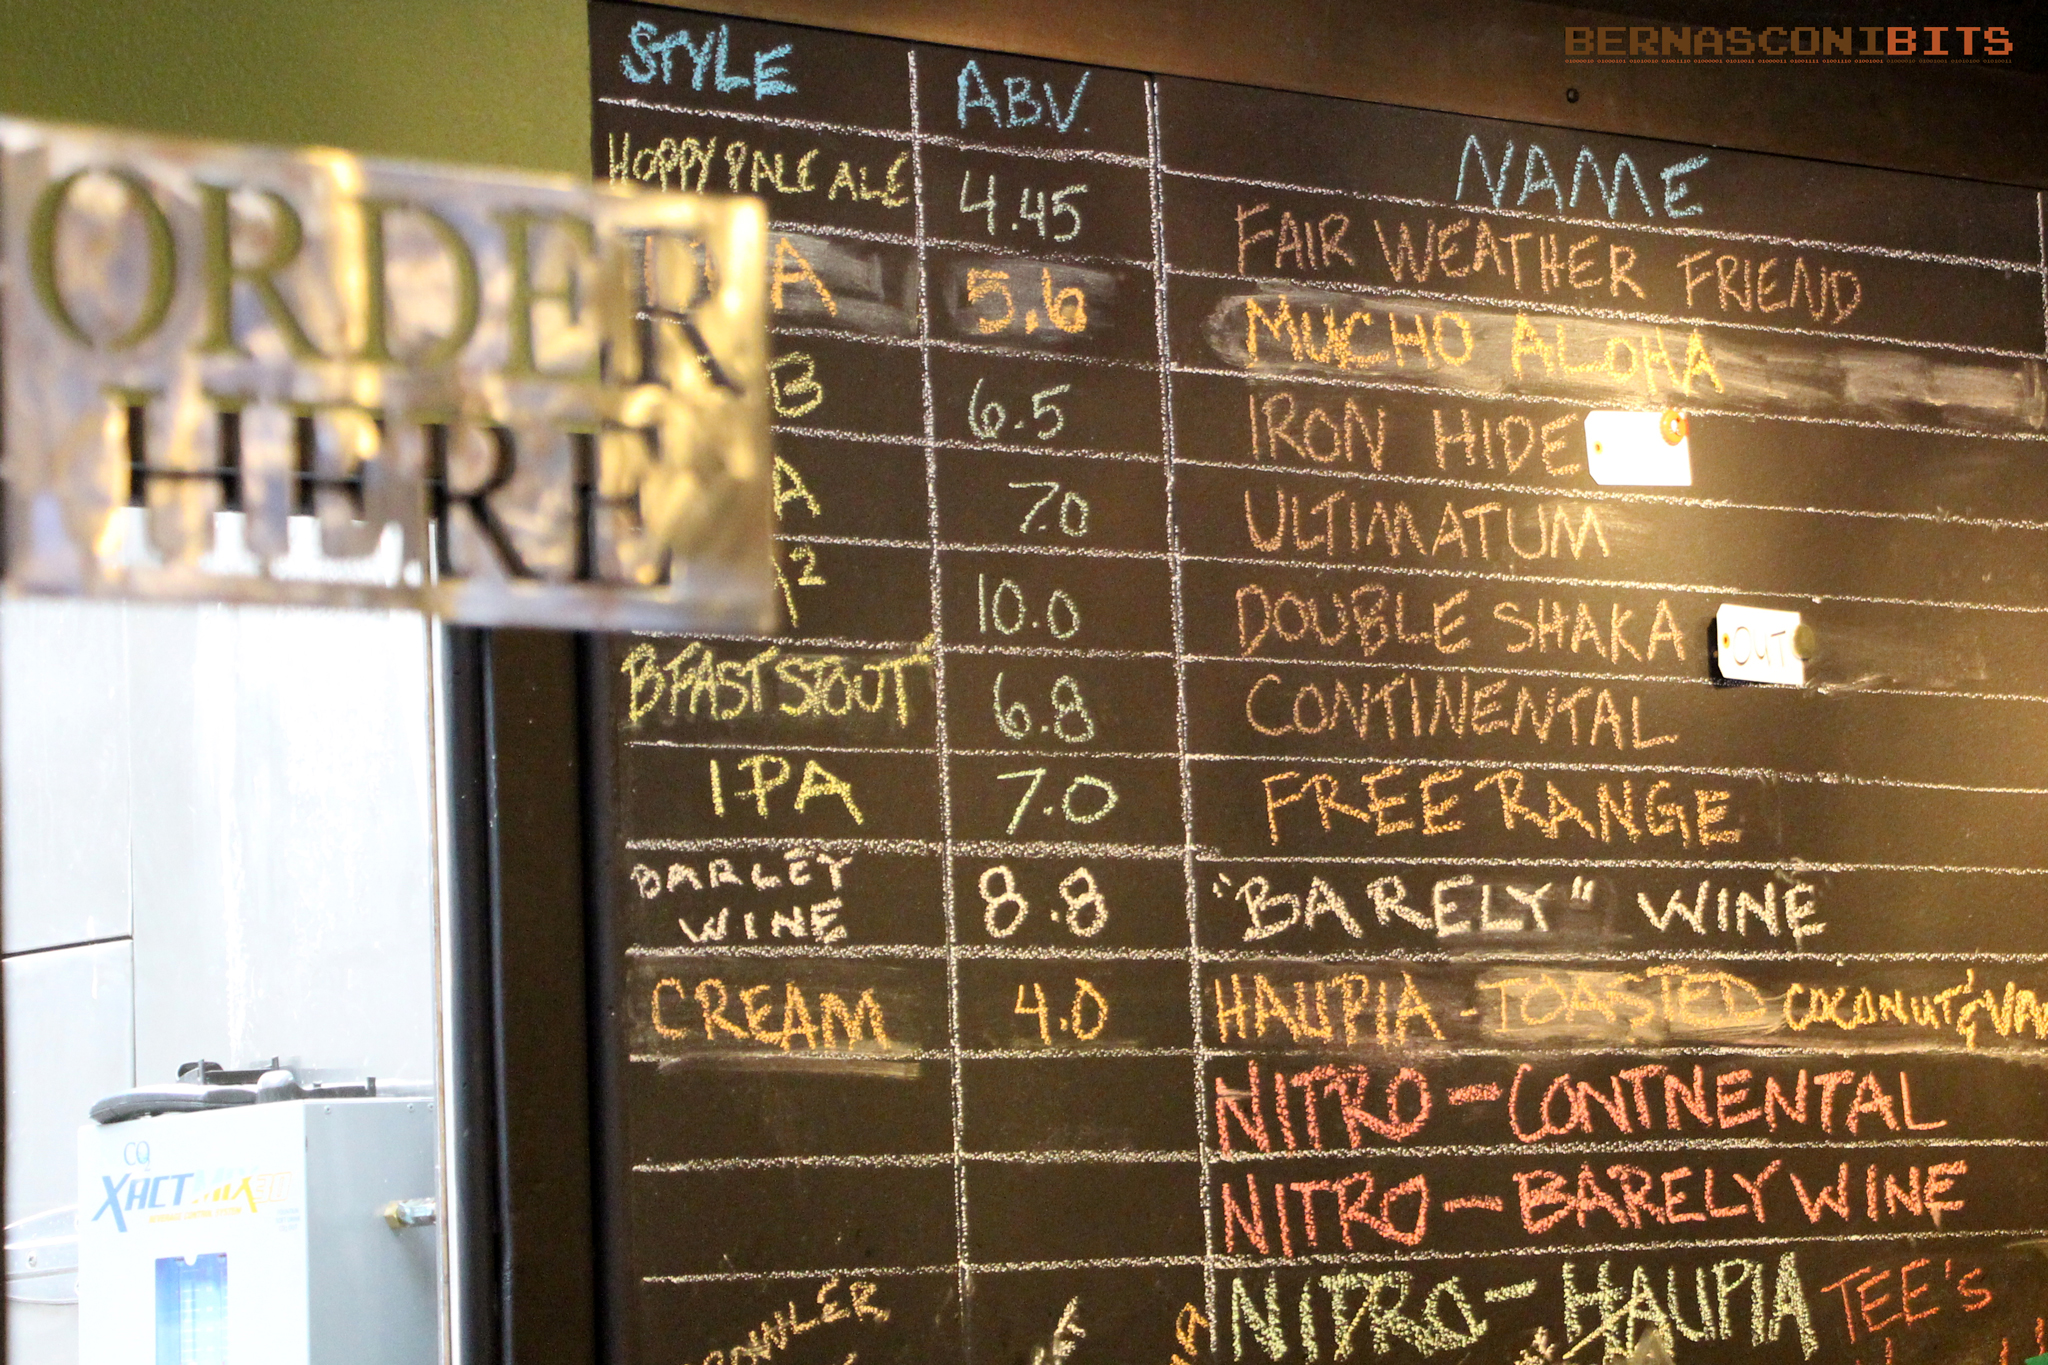 BERNASCONIBITS
ORDER
HERE
STYLE A.B.V. NAME
HOPPY PALE ALE 4.45 FAIR WEATHER FRIEND
5.6 MUCHO ALOHA
6.5 IRON HIDE
7.0 ULTIMATUM
10.0 DOUBLE SHAKA OUT
BFAST STOUT 6.8 CONTINENTAL
IPA 7.0 FREE RANGE
BARLEY WINE 8.8 "BARELY" WINE
CREAM 4.0 HAUPIA - TOASTED COCONUT &
NITRO - CONTNENTAL
NITRO - BARELY WINE
NITRO - HAUPIA TEE'S
CQ
XACTMIX